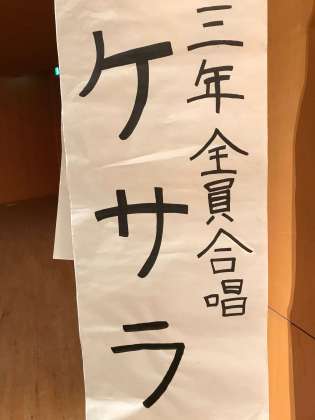 三年 全員合唱
ケサラ